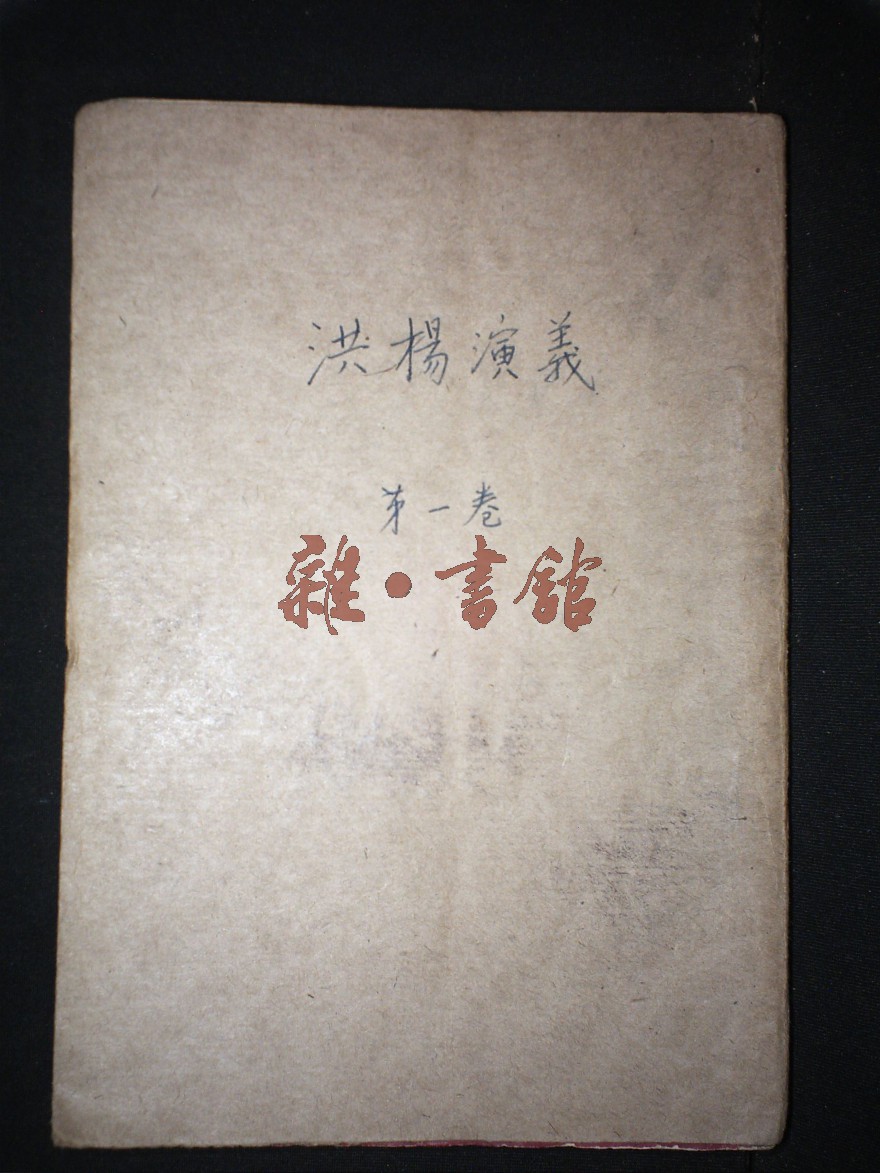 洪楊演義
第一卷
雜·書館